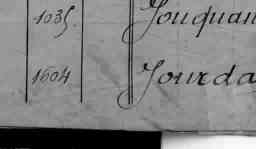 1035 Jouquan
1604 Jourda